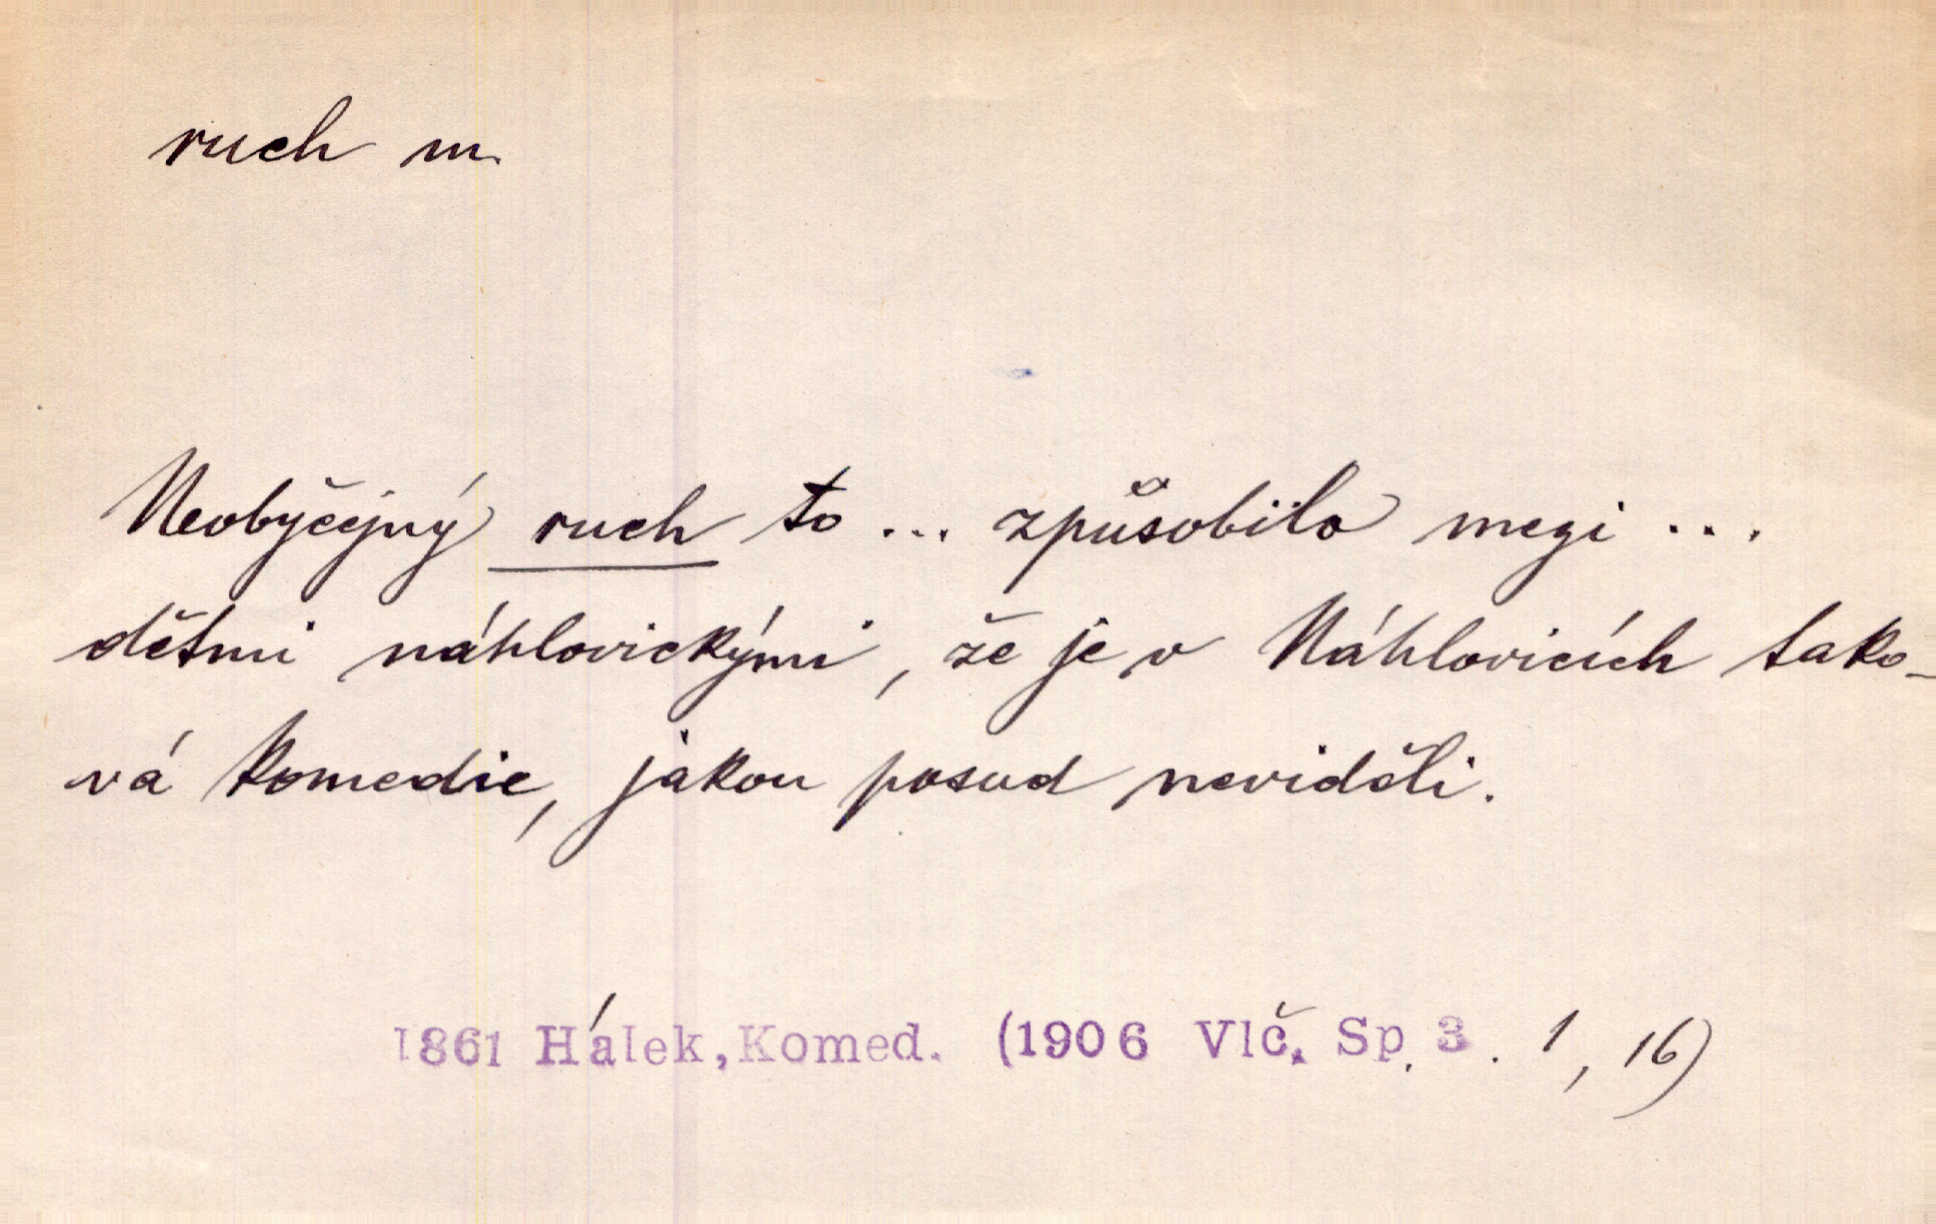 ruch m.
Neobyčejný ruch to ... způsobilo mezi ...
dětmi náhlovickými, že je v Náhlovicích tako-
vá komedie, jakou posud neviděli.
1861 Hálek, Komed. (1906 Vlč. Sp. 3. 1, 16)